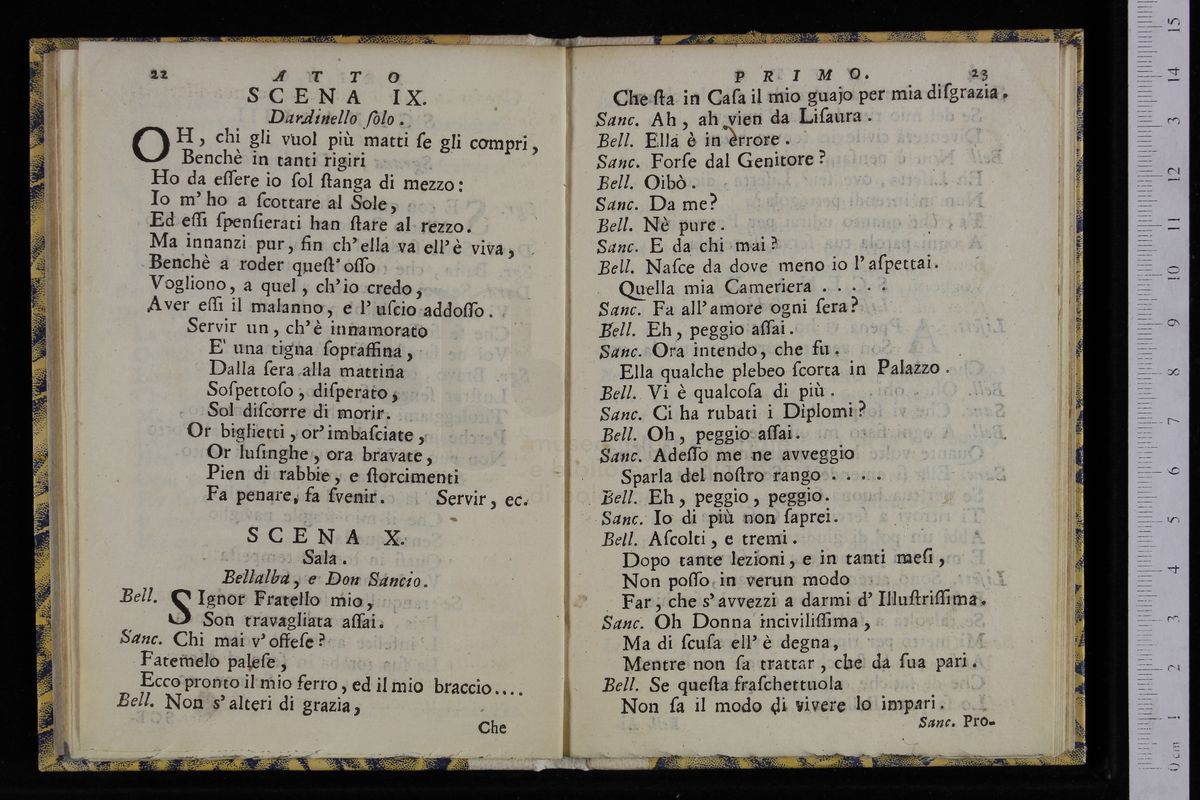 22 ATTO
SCENA IX.
Dardinello ſolo.
OH, chi gli vuol più matti ſe gli compri,
Benchè in tanti rigiri
Ho da eſſere io ſol ſtanga di mezzo:
Io m' ho a ſcottare al Sole,
Ed eſſi ſpenſierati han ſtare al rezzo.
Ma innanzi pur, fin ch'ella va ell'è viva,
Benchè a roder queſt'oſſo
Vogliono, a quel, ch'io credo,
Aver eſſi il malanno, e l' uſcio addoſſo.
Servir un, ch'è innamorato
E' una tigna ſopraffina,
Dalla ſera alla mattina
Soſpettoſo, diſperato,
Sol diſcorre di morir.
Or biglietti, or' imbaſciate,
Or luſinghe, ora bravate,
Pien di rabbie, e ſtorcimenti
Fa penare, fa ſvenir. Servir, ec.
SCENA X.
Sala.
Bellalba, e Don Sancio.
Bell. SIgnor Fratello mio,
Son travagliata aſſai.
Sanc. Chi mai v' offeſe?
Fatemelo paleſe,
Ecco pronto il mio ferro, ed il mio braccio....
Bell. Non s' alteri di grazia,
Che
PRIMO. 23
Che ſta in Caſa il mio guajo per mia diſgrazia.
Sanc. Ah, ah vien da Liſaura.
Bell. Ella è in errore.
Sanc. Forſe dal Genitore?
Bell. Oibò.
Sanc. Da me?
Bell. Nè pure.
Sanc. E da chi mai?
Bell. Naſce da dove meno io l' aſpettai.
Quella mia Cameriera . . . . .
Sanc. Fa all' amore ogni ſera?
Bell. Eh, peggio aſſai.
Sanc. Ora intendo, che fu.
Ella qualche plebeo ſcorta in Palazzo.
Bell. Vi è qualcoſa di più.
Sanc. Ci ha rubati i Diplomi?
Bell. Oh, peggio aſſai.
Sanc. Adeſſo me ne avveggio
Sparla del noſtro rango . . . .
Bell. Eh, peggio, peggio.
Sanc. Io di più non ſaprei.
Bell. Aſcolti, e tremi.
Dopo tante lezioni, e in tanti meſi,
Non poſſo in verun modo
Far, che s' avvezzi a darmi d' Illuſtriſſima.
Sanc. Oh Donna inciviliſſima,
Ma di ſcuſa ell' è degna,
Mentre non ſa trattar, che da ſua pari.
Bell. Se queſta fraſchettuola
Non ſa il modo di vivere lo impari.
Sanc. Pro-